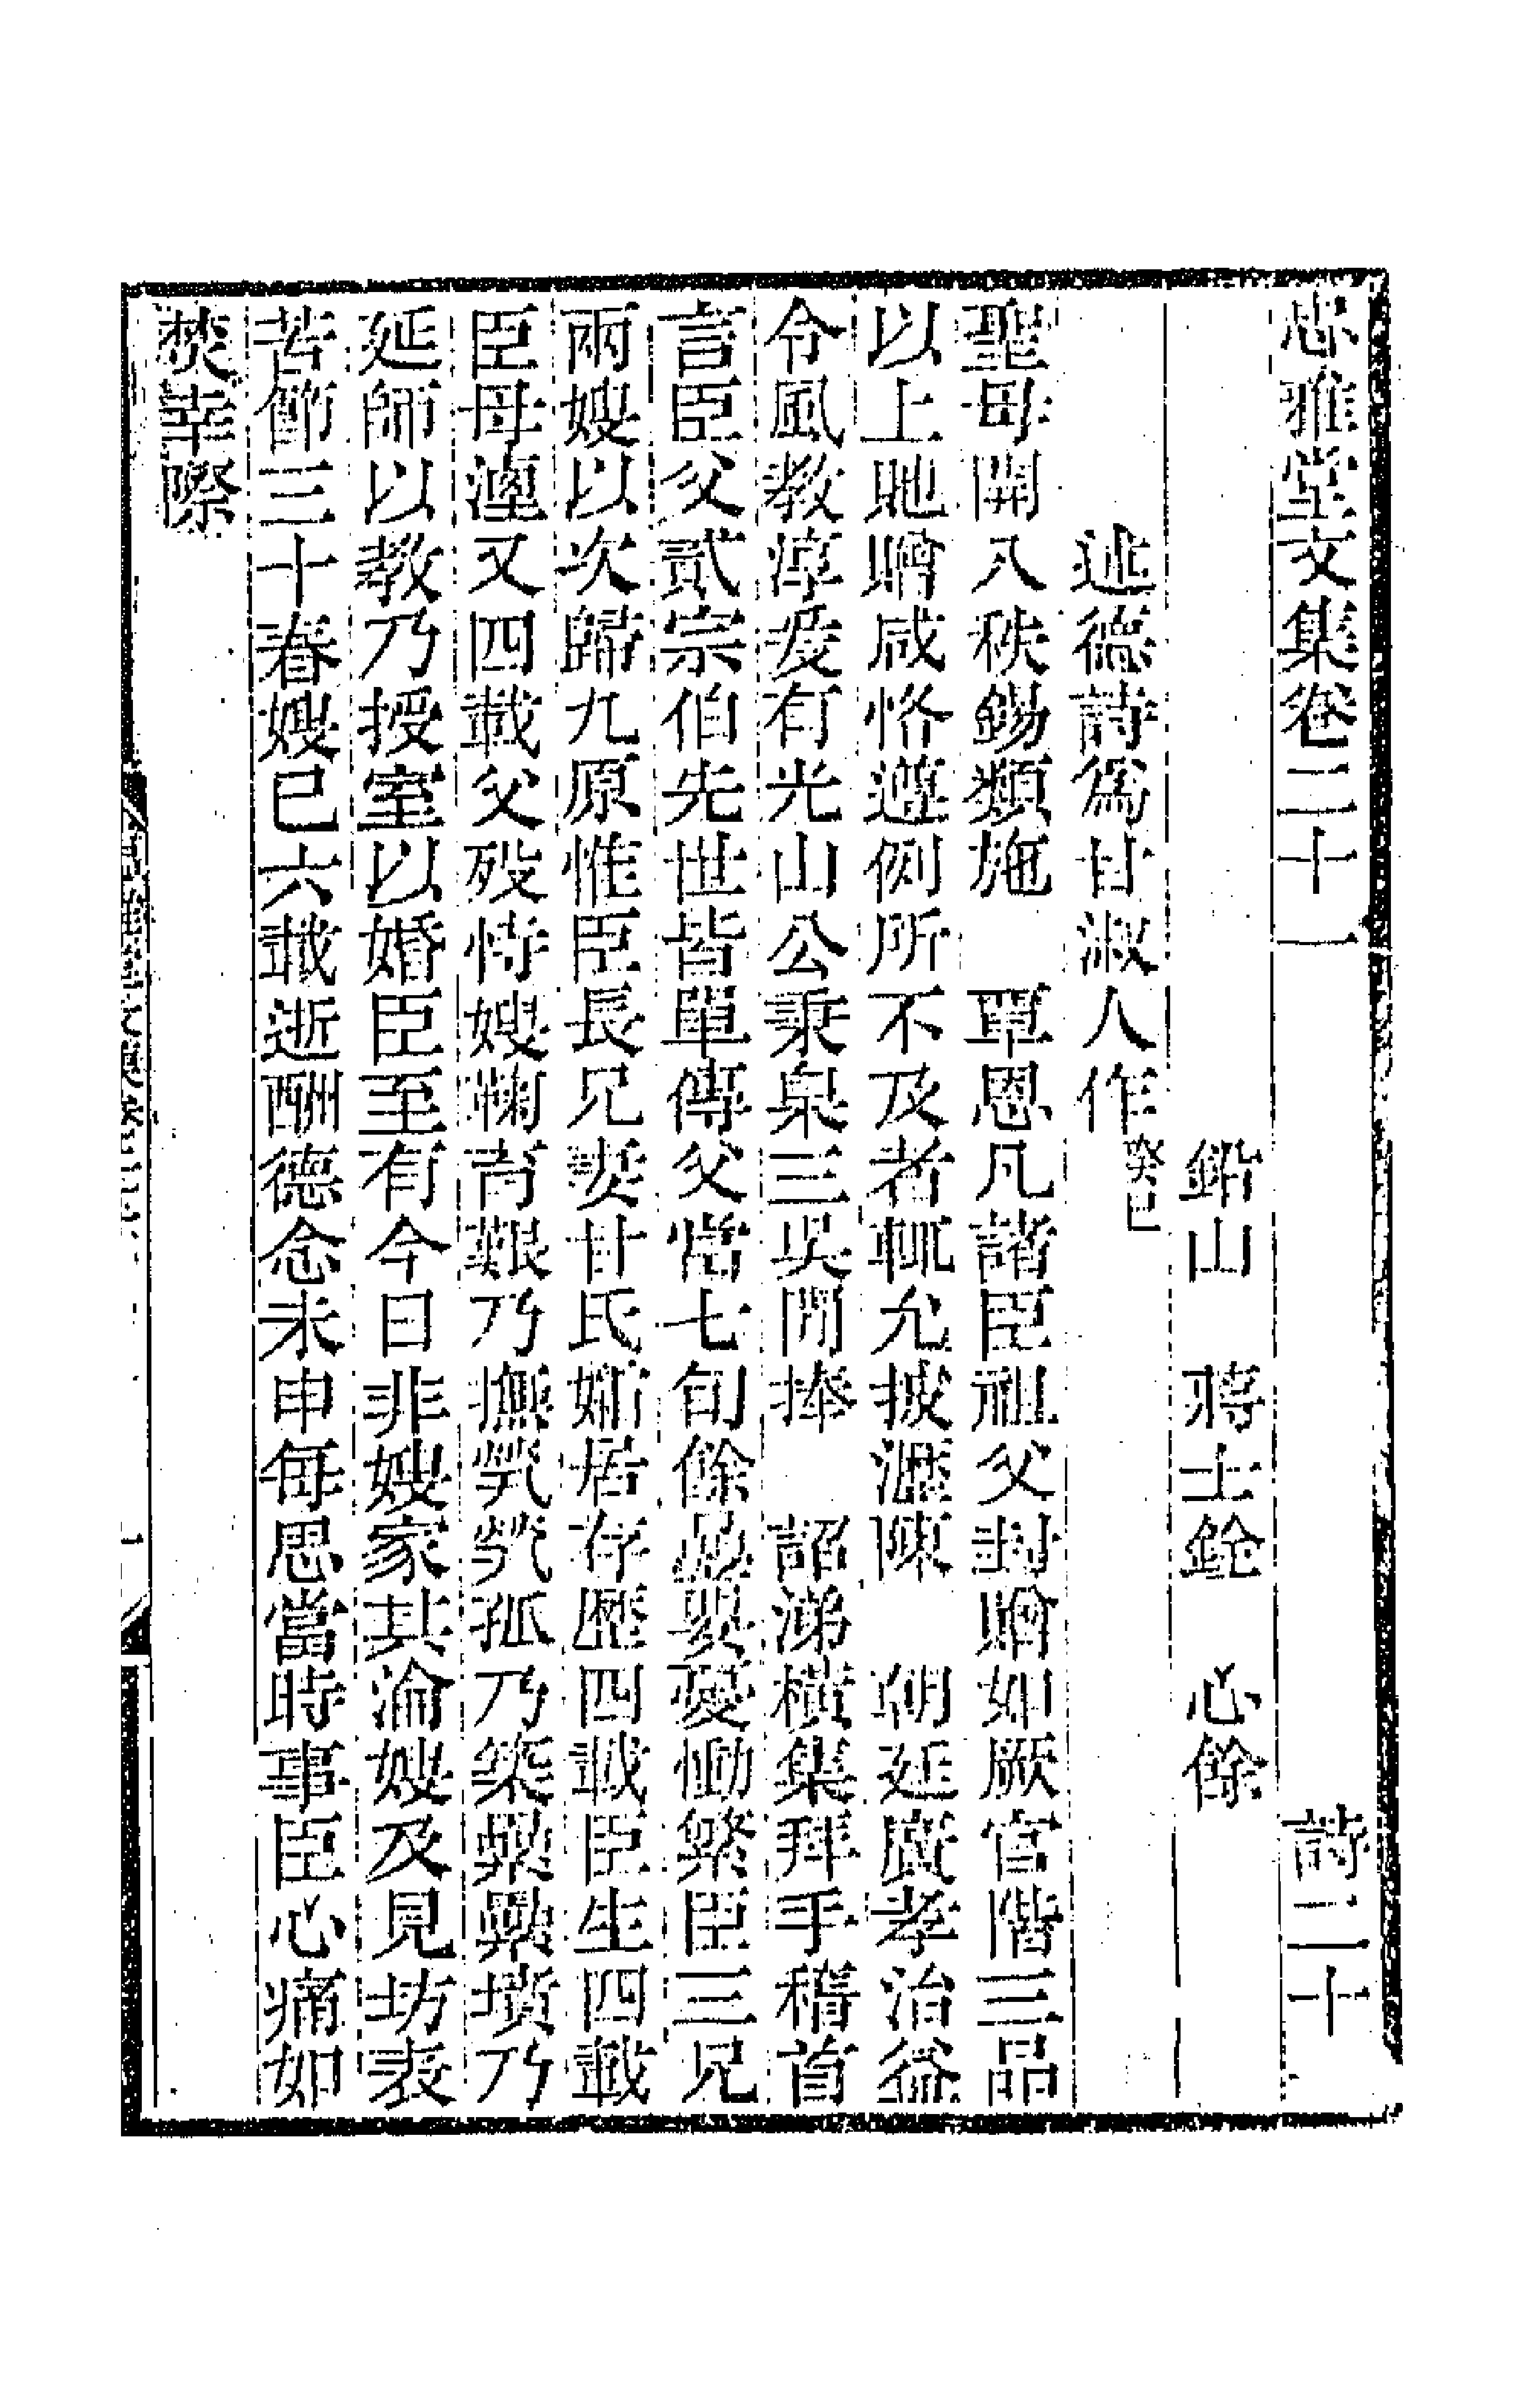 忠雅堂文集卷二十一 詩二十
鉛山 蔣士銓 心餘
述德詩爲甘淑人作癸巳
聖母開八秩錫類施 覃恩凡諸臣祖父封贈如厥官階三品
以上貤贈咸恪遵例所不及者輒允披瀝陳 朝廷廣孝治益
令風教淳爰有光山公秉臬三吳閒捧 詔涕橫集拜手稽首
言臣父貳宗伯先世皆單傳父當七旬餘憂慟縈臣三兄
兩嫂以次歸九原惟臣長兄妻甘氏孀居存歷四載臣生四載
臣母湮又四載父歿恃嫂鞠育艱乃撫煢煢孤乃築纍纍墳乃
延師以教乃授室以婚臣至有今日非嫂家其淪嫂及見坊表
苦節三十春嫂已六載逝酬德念未申每思當時事臣心痛如
焚幸際